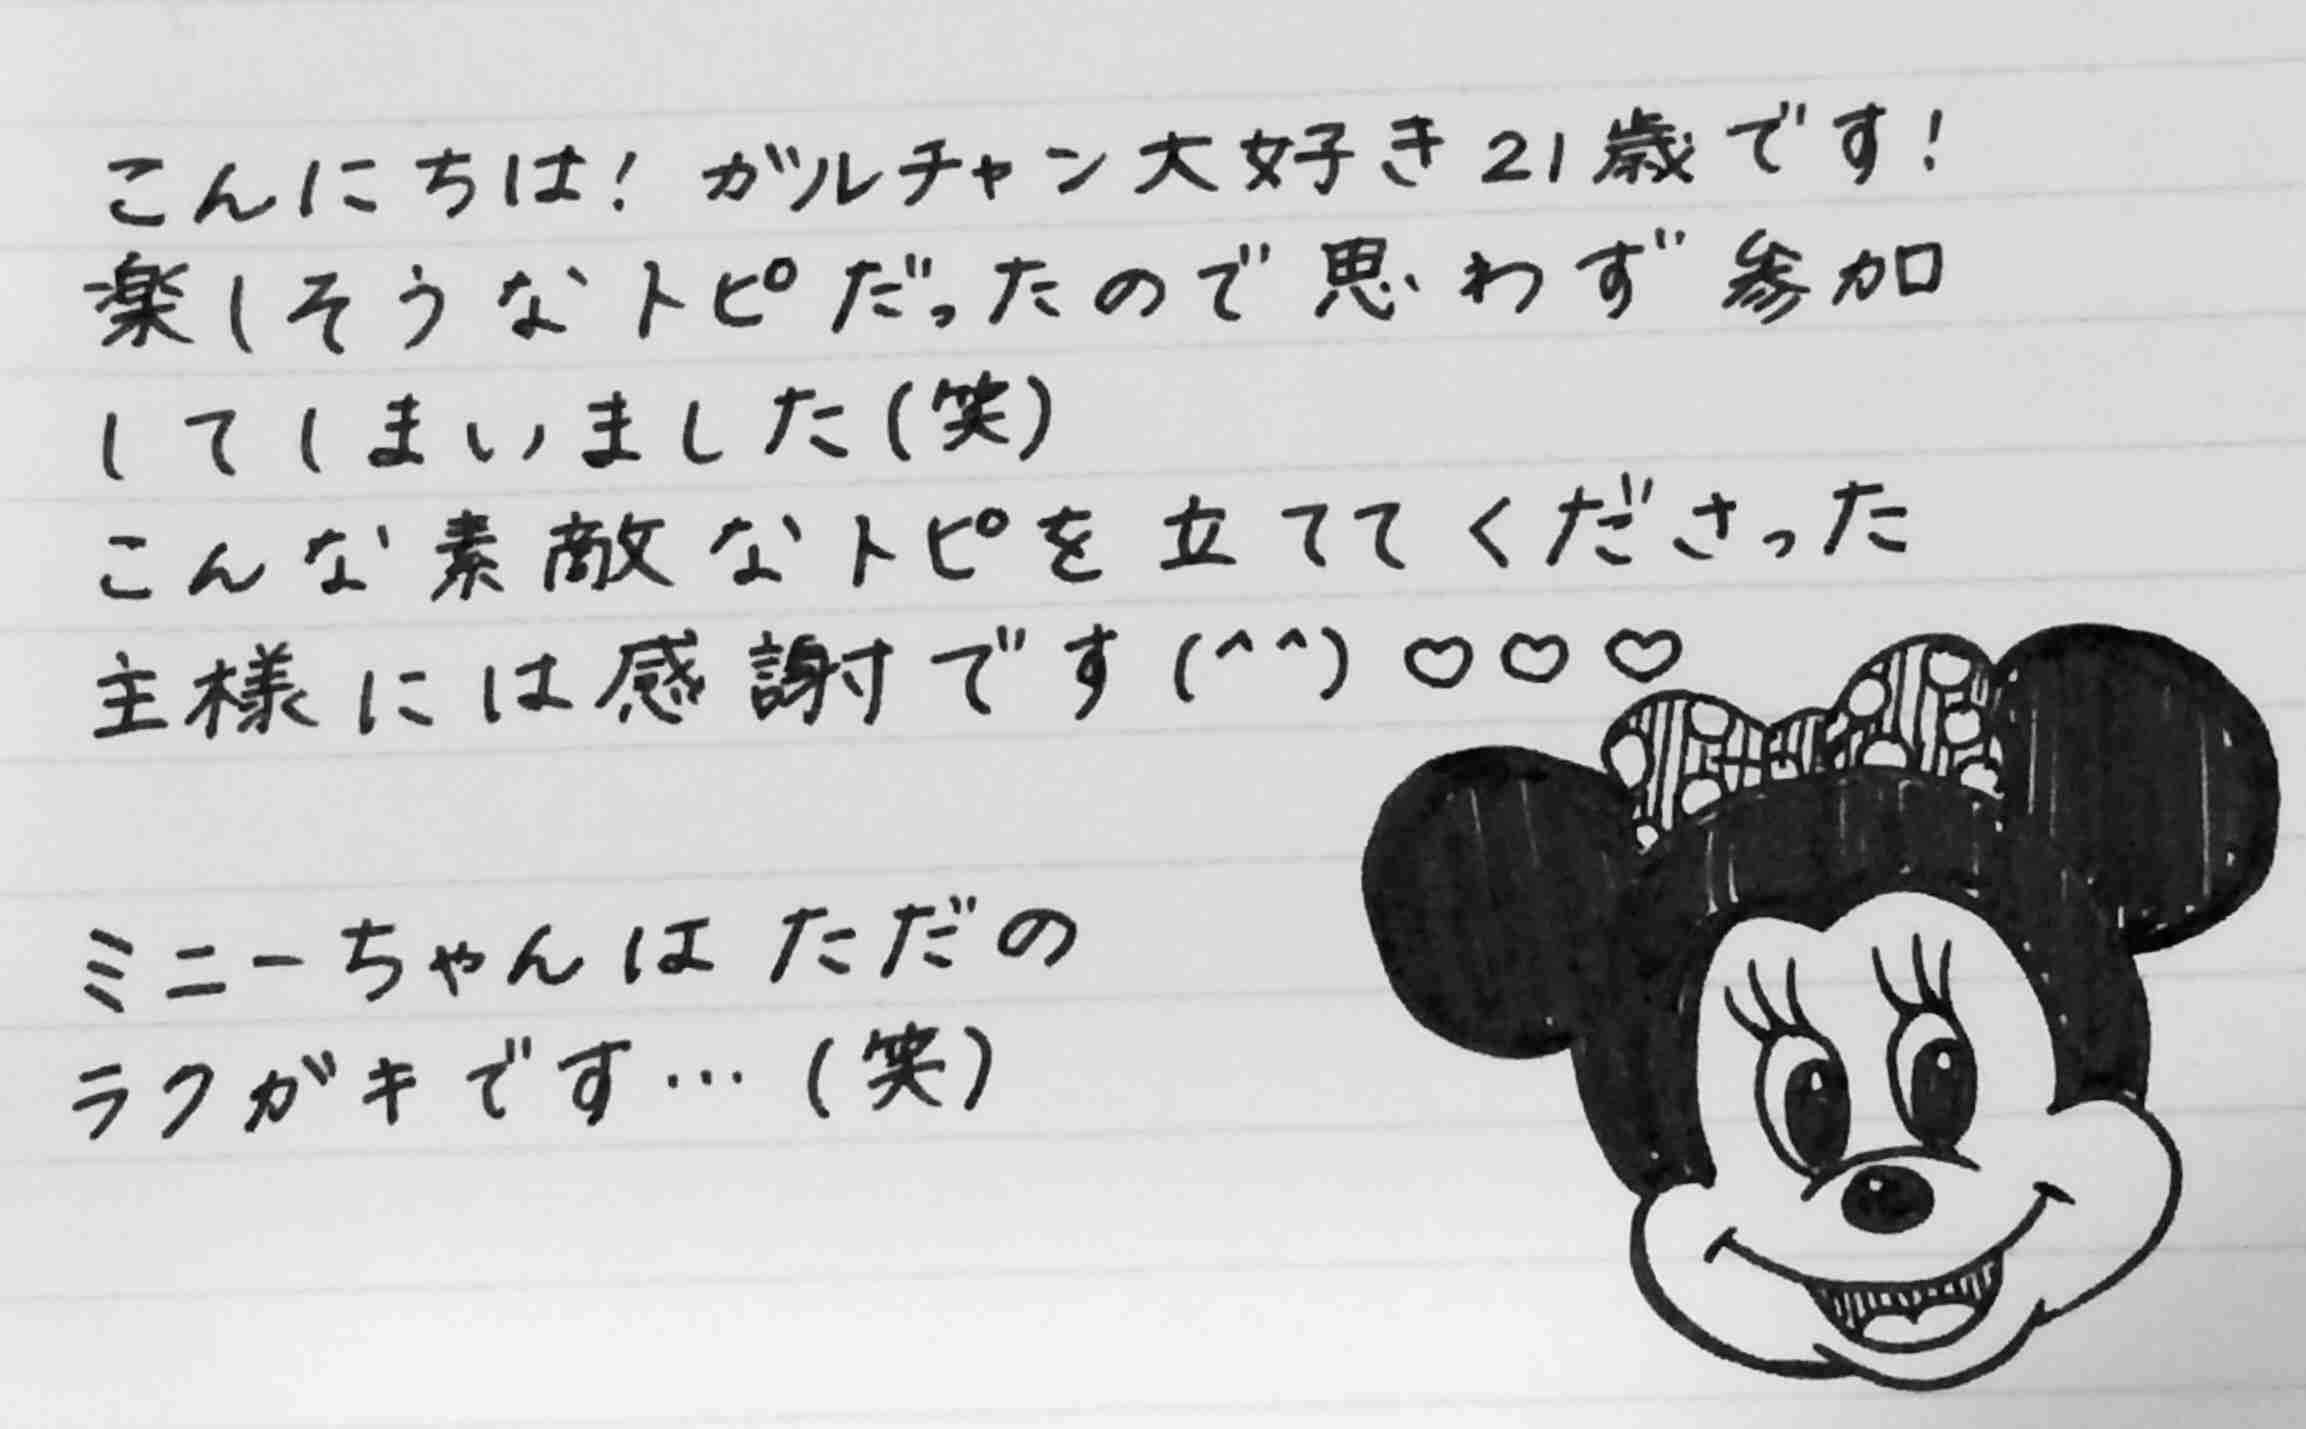 こんにちは！ガルチャン大好き21歳です！
楽しそうなトピだったので思わず参加
してしまいました(笑)
こんな素敵なトピを立ててくださった
主様には感謝です(^^)♡♡♡
ミニーちゃんはただの
ラクガキです…(笑)